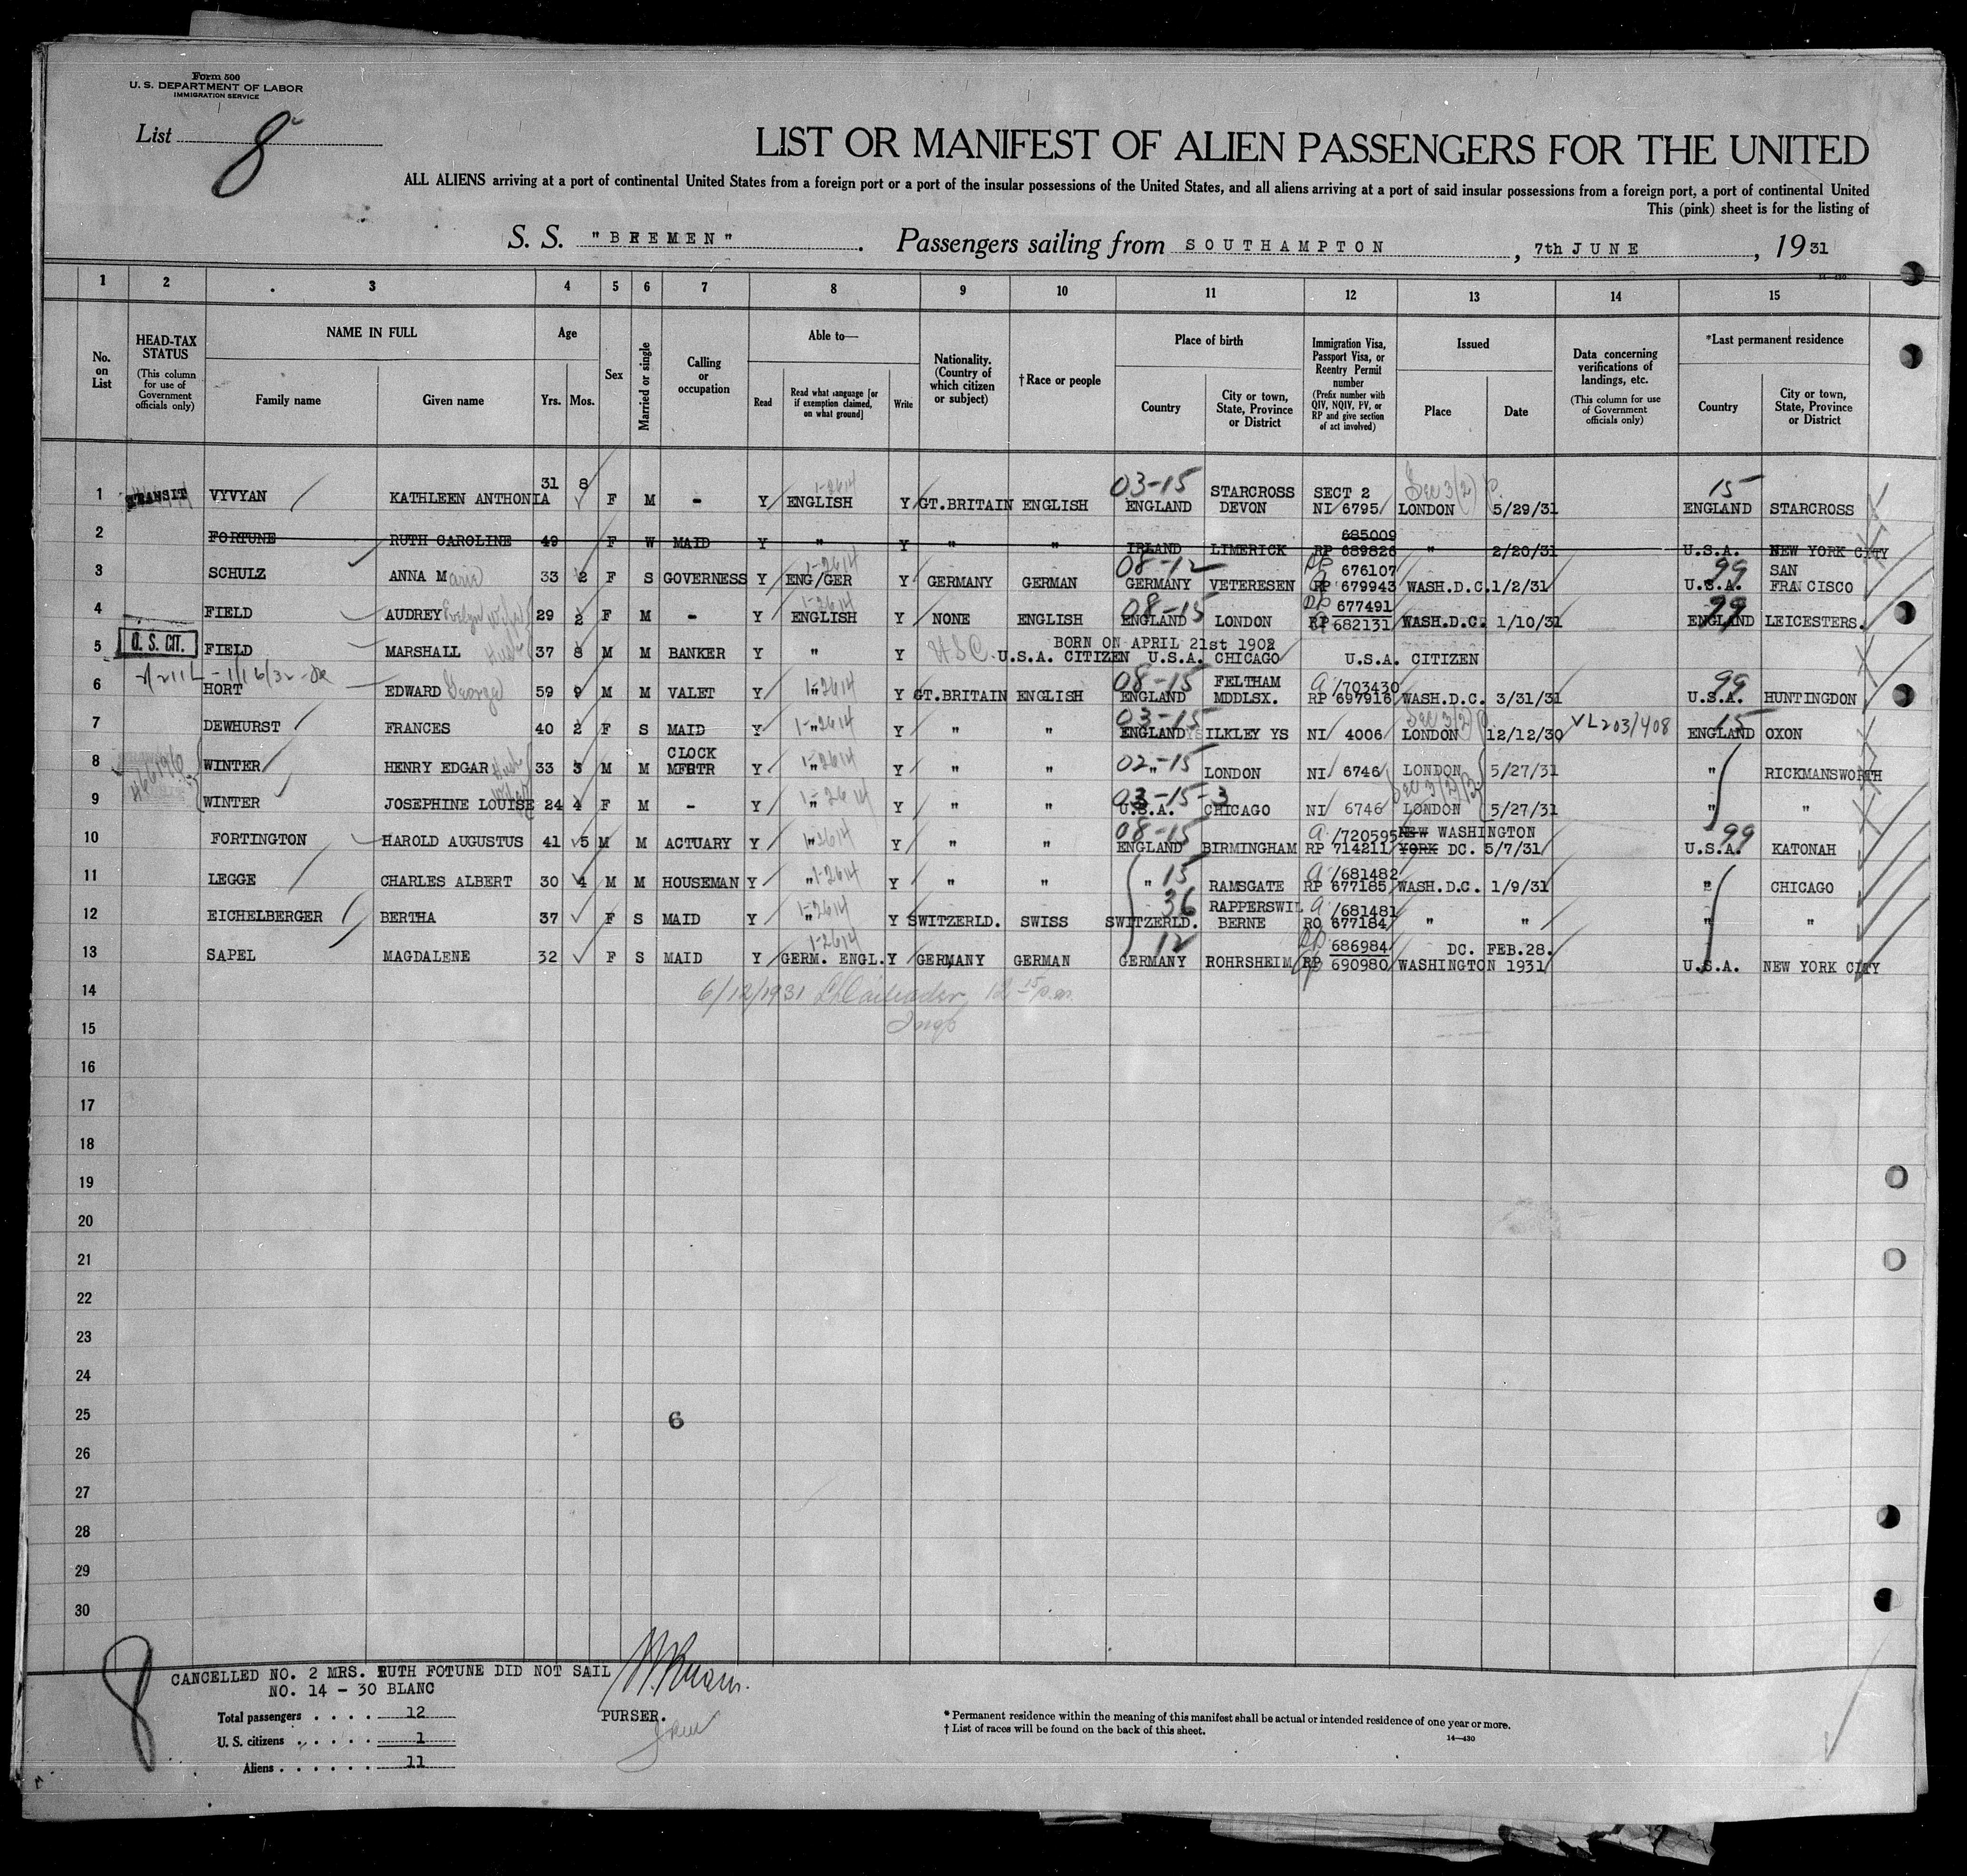 Form 500
U. S. DEPARTMENT OF LABOR
IMMIGRATION SERVICE
List 8
LIST OR MANIFEST OF ALIEN PASSENGERS FOR THE UNITED
ALL ALIENS arriving at a port of continental United States from a foreign port or a port of the insular possessions of the United States, and all aliens arriving at a port of said insular possessions from a foreign port, a port of continental United
This (pink) sheet is for the listing of
S. S. "BREMEN" . Passengers sailing from SOUTHAMPTON , 7th JUNE , 19 31
14—430
1 2 3 4 5 6 7 8 9 10 11 12 13 14 15
No. on List
HEAD-TAX STATUS (This column for use of Government officials only)
NAME IN FULL Family name Given name
Age Yrs. Mos.
Sex
Married or single
Calling or occupation
Able to— Read Read what language [or if exemption claimed, on what ground] Write
Nationality. (Country of which citizen or subject)
† Race or people
Place of birth Country City or town, State, Province or District
Immigration Visa, Passport Visa, or Reentry Permit number (Prefix number with QIV, NQIV, PV, or RP and give section of act involved)
Issued Place Date
Data concerning verifications of landings, etc. (This column for use of Government officials only)
*Last permanent residence Country City or town, State, Province or District
1 TRANSIT VYVYAN KATHLEEN ANTHONIA 31 8 F M - Y ENGLISH 1-2614 Y GT.BRITAIN ENGLISH 03-15 ENGLAND STARCROSS DEVON SECT 2 NI 6795 Sec 3(2) LONDON 5/29/31 15 ENGLAND STARCROSS
2 FORTUNE RUTH CAROLINE 49 F W MAID Y " Y " " IRLAND LIMERICK 685009 RP 689826 " 2/20/31 U.S.A. NEW YORK CITY
3 SCHULZ ANNA Marie 33 2 F S GOVERNESS Y ENG/GER 1-2614 Y GERMANY GERMAN 08-12 GERMANY VETERESEN 676107 RP 679943 WASH.D.C. 1/2/31 99 U.S.A. SAN FRANCISCO
4 FIELD AUDREY Evelyn Wife 29 2 F M - Y ENGLISH 1-2614 Y NONE ENGLISH 08-15 ENGLAND LONDON 677491 RP 682131 WASH.D.C. 1/10/31 99 ENGLAND LEICESTERS.
5 U. S. CIT. FIELD MARSHALL Husb 37 8 M M BANKER Y " Y USC BORN ON APRIL 21st 1902 U.S.A. CITIZEN U.S.A. CHICAGO U.S.A. CITIZEN
6 HORT EDWARD George 59 9 M M VALET Y " 1-2614 Y GT.BRITAIN ENGLISH 08-15 ENGLAND FELTHAM MDDLSX. a/703430 RP 697916 WASH.D.C. 3/31/31 99 U.S.A. HUNTINGDON
7 DEWHURST FRANCES 40 2 F S MAID Y " 1-2614 Y " " 03-15 ENGLAND ILKLEY YS NI 4006 Sec 3(2) LONDON 12/12/30 VL203/408 15 ENGLAND OXON
8 WINTER HENRY EDGAR Husb 33 3 M M CLOCK MFRTR Y " 1-2614 Y " " 02-15 " LONDON NI 6746 LONDON 5/27/31 " RICKMANSWORTH
9 WINTER JOSEPHINE LOUISE Wife 24 4 F M - Y " 1-2614 Y " " 03-15-3 U.S.A. CHICAGO NI 6746 LONDON 5/27/31 " "
10 FORTINGTON HAROLD AUGUSTUS 41 5 M M ACTUARY Y " 1-2614 Y " " 08-15 ENGLAND BIRMINGHAM a/720595 RP 714211 NEW YORK WASHINGTON DC. 5/7/31 99 U.S.A. KATONAH
11 LEGGE CHARLES ALBERT 30 4 M M HOUSEMAN Y " 1-2614 Y " " 15 " RAMSGATE a/681482 RP 677185 WASH.D.C. 1/9/31 " CHICAGO
12 EICHELBERGER BERTHA 37 F S MAID Y " 1-2614 Y SWITZERLD. SWISS 36 SWITZERLD. RAPPERSWIL BERNE a/681481 RO 677184 " " " "
13 SAPEL MAGDALENE 32 F S MAID Y GERM. ENGL. 1-2614 Y GERMANY GERMAN 12 GERMANY ROHRSHEIM 686984 RP 690980 DC. WASHINGTON FEB.28. 1931 U.S.A. NEW YORK CITY
14 6/12/1931 12 15 p.m.
15 Insp
16
17
18
19
20
21
22
23
24
25 6
26
27
28
29
30
8
CANCELLED NO. 2 MRS. RUTH FOTUNE DID NOT SAIL
NO. 14 - 30 BLANC
Total passengers . . . . 12
U. S. citizens . . . . . 1
Aliens . . . . . . 11
PURSER.
* Permanent residence within the meaning of this manifest shall be actual or intended residence of one year or more.
† List of races will be found on the back of this sheet.
14—430